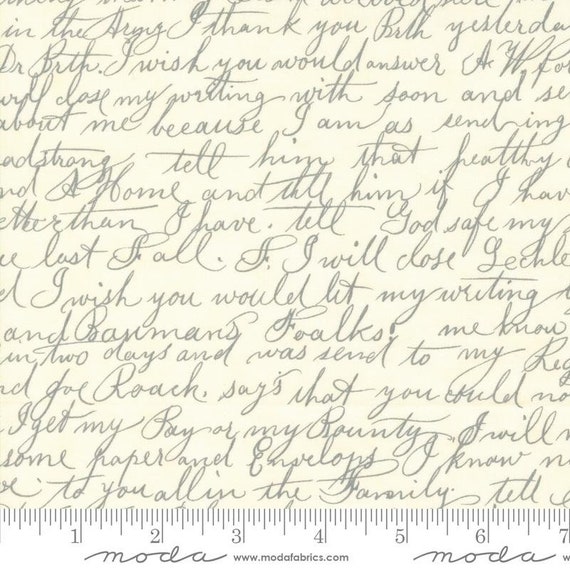 in the Army I thank you Brth yesterda
Dr Brth. I wish you would answer A W for
will close my writing with soon and se
about me because I am as send ing
adstrong, tell him that healthy
nd A Home and till him if I have
etter than I have. tell God safe my
ce last Fall. F. I will close Lechle
d I wish you would lit my writing
and Bauman's Foalks! me know
in two days and was send to my Reg
nd Joe Roach. say's that you could no
I get my Pay or my Bounty I will
some paper and Envelops I know n
to you all in the Family. tell
1 2 3 4 5 6 7
moda www.modafabrics.com moda www.modafabrics.com